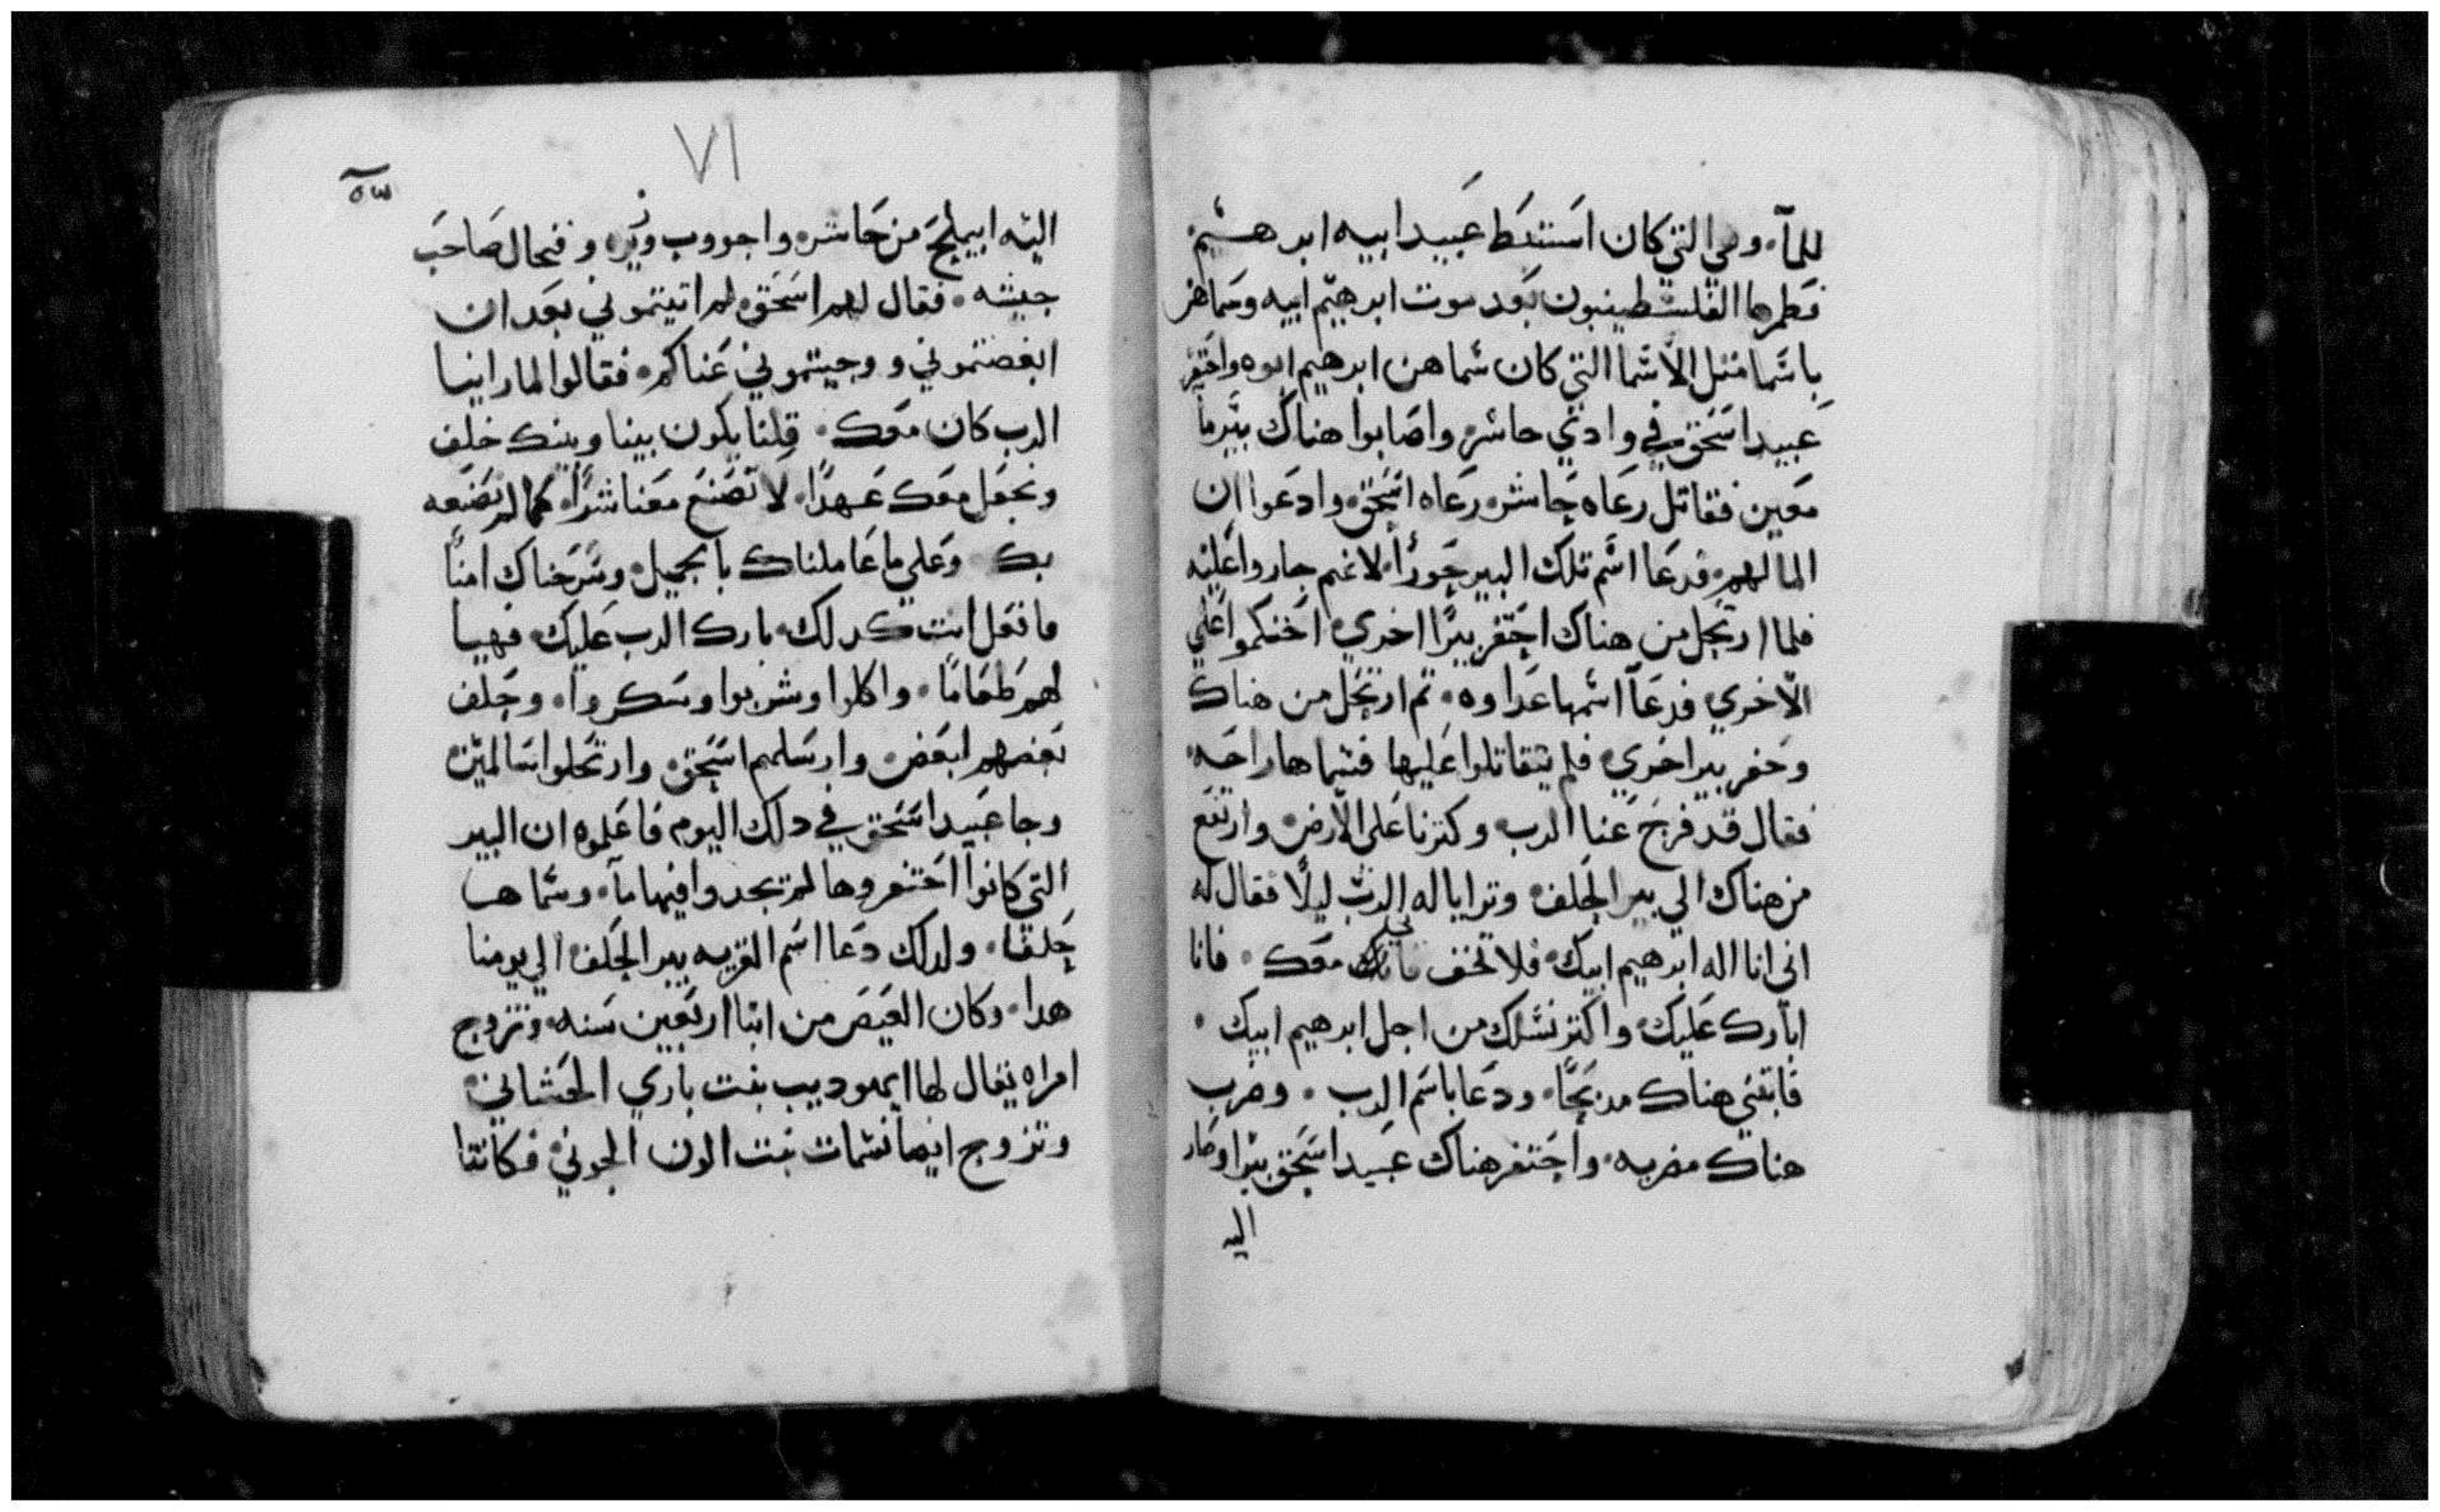 للمآ، وهي التي كان استنبط عبيد ابيه ابرهيم
فطمرها الفلسطينيون بعد موت ابرهيم ابيه وسماهن
باسما مثل الاسما التي كان سماهن ابرهيم ابوه واحتفر
عبيد اسحق في وادي حاشر واصابوا هناك بير ما
معين فقاتل رعاه حاشر رعاه اسحق وادعوا ان
الما لهم فدعا اسم تلك البير جوراً لانهم جاروا عليه
فلما ارتحل من هناك احتفر بيرًا اخري اختكموا علي
الاخري فدعآ اسمها عداوه ٠ تم ارتحل من هناك
وحفر بير اخري فلم يتقاتلوا عليها فسماها راحه
فقال قد فرج عنا الرب وكترنا على الارض وارتفع
من هناك الي بير الحلف وترايا له الرب ليلًا فقال له
اني انا اله ابرهيم ابيك فلا تخف معك ٠ فانا
ابارك عليك واكتر نسلك من اجل ابرهيم ابيك ٠
فابتني هناك مدبحًا ودعا باسم الرب ٠ وضرب
هناك مضربه واحتفر هناك عبيد اسحق بيرا وصار
اليه
٧١
اليه ابيملخ من حاشر واجووب وزيره وفيحال صاحب
جيشه ٠ فقال لهم اسحق لم اتيتموني بعد ان
ابغضتموني ووجيتموني عناكم ٠ فقالوا لما راينا
الرب كان معك ٠ قلنا يكون بينا وبينك خلف
ونجعل معك عهدًا لا تصنع معنا شرًا كما لم نصنعه
بك وعلي ما عاملناك بالجميل وسرحناك امنًا
ما تفعل انت كدلك بارك الرب عليك فهيا
لهم طعامًا ٠ واكلوا وشربوا وسكروا ٠ وحلف
بعضهم لبعض وارسلهم اسحق وارتحلوا سالمين
وجا عبيد اسحق في دلك اليوم فاعلموه ان البير
التي كانوا احتفروها لم تجدوا فيها مآ ٠ وسماها
حلفا ٠ ولدلك دعا اسم القريه بير الحلف الي يومنا
هدا ٠ وكان العيص من ابنا اربعين سنه وتزوج
امراه يقال لها ايهوديب بنت باري الحتاني
وتزوج ايضا نسمات بنت الون الجوني فكانتا